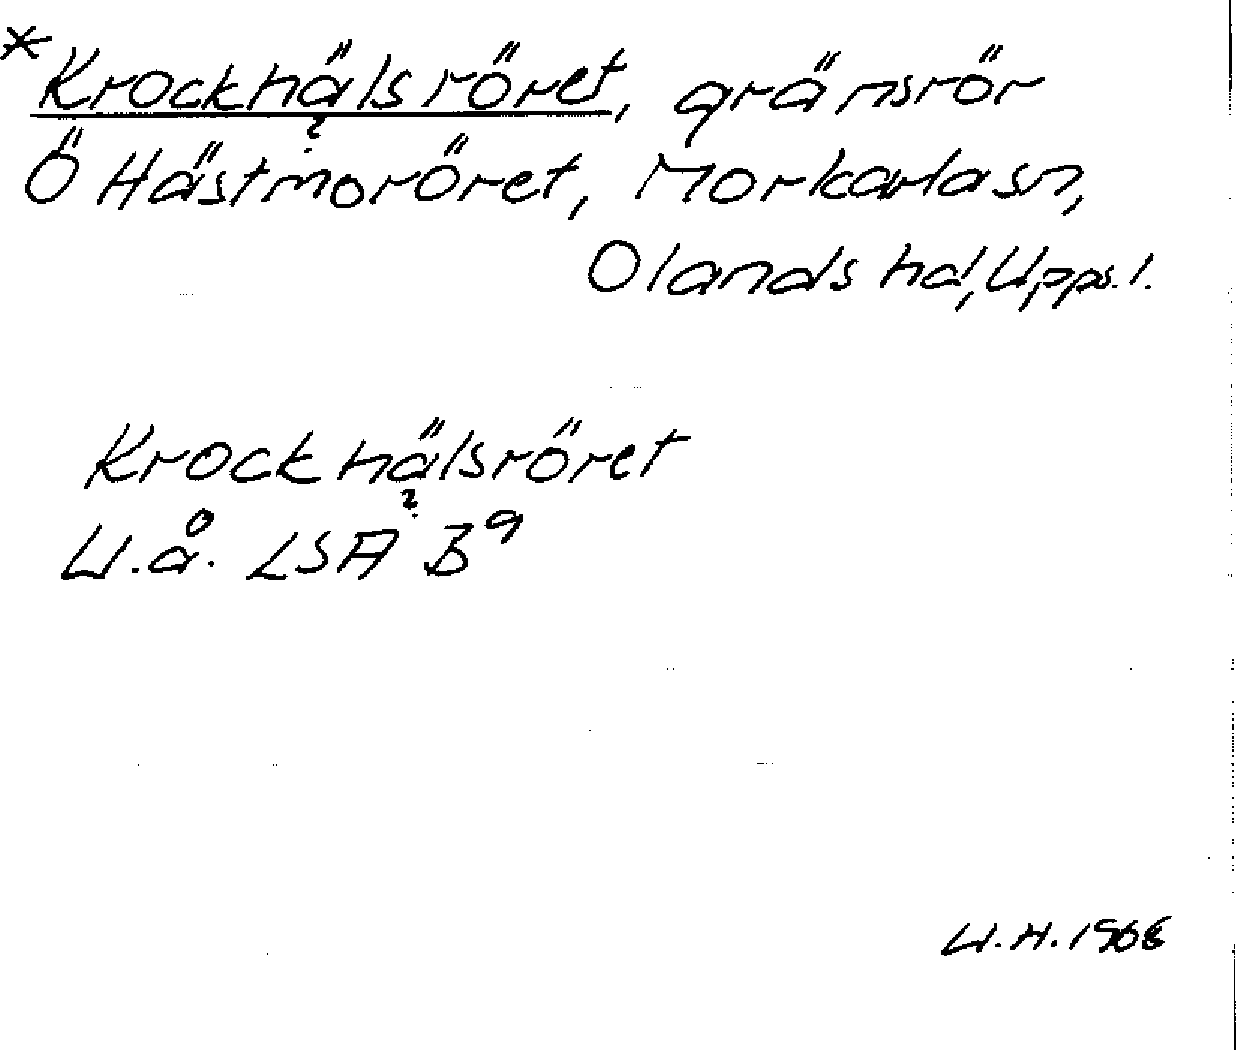 *Krockhälsröret, gränsrör
?
Ö Hästmoröret, Morkarlasn,
Olands hd, Upps. l.
Krockhälsröret
?
U.å. LSA B9
U.H. 1968